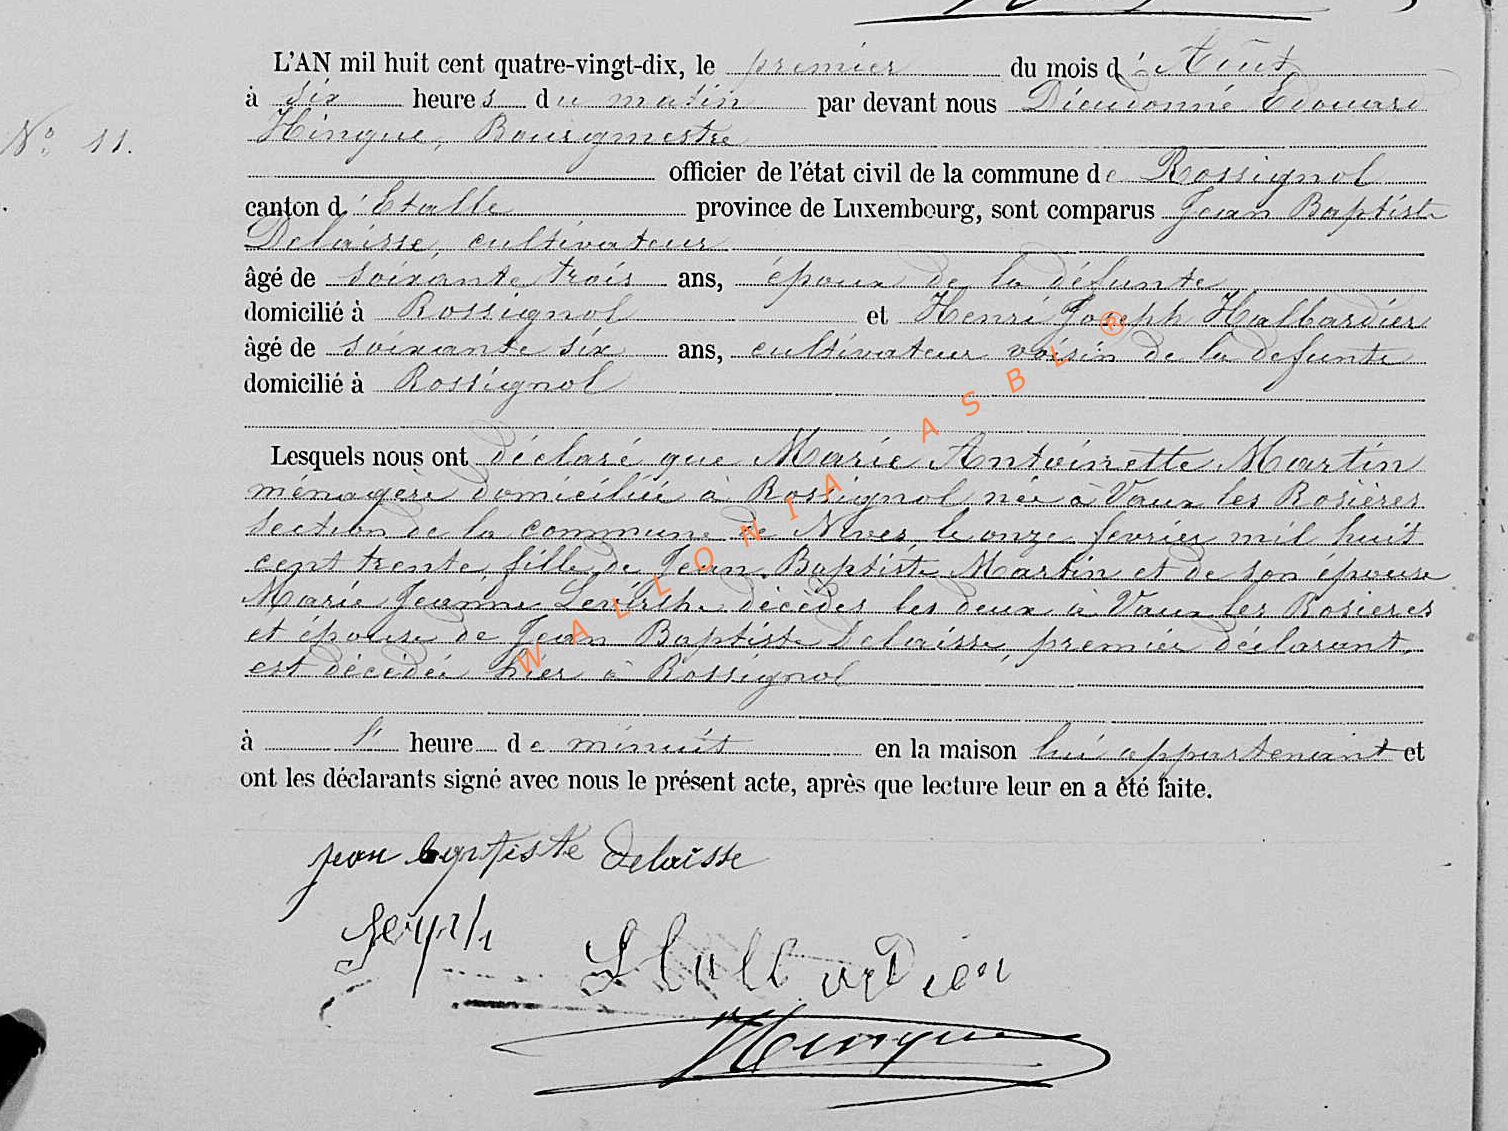 L'AN mil huit cent quatre-vingt-dix, le premier du mois d'Août
à six heures du matin par devant nous Dieudonné Edouard
N° 11.
Hinque, Bourgmestre
officier de l'état civil de la commune de Rossignol
canton d'Etalle province de Luxembourg, sont comparus Jean Baptiste
Delaisse, cultivateur
âgé de soixante trois ans, époux de la défunte
domicilié à Rossignol et Henri Joseph Halbardier
âgé de soixante six ans, cultivateur voisin de la defunte
domicilié à Rossignol
Lesquels nous ont déclaré que Marie Antoinette Martin
ménagère domiciliée à Rossignol née à Vaux les Rosières
section de la commune de Nives le onze fevrier mil huit
cent trente, fille de Jean Baptiste Martin et de son épouse
Marie Jeanne décédés les deux à Vaux les Rosieres
et épouse de Jean Baptiste Delaisse, premier déclarant,
est décédée hier à Rossignol
à l' heure de minuit en la maison lui appartenant et
ont les déclarants signé avec nous le présent acte, après que lecture leur en a été faite.
jean baptiste delaisse
Halbardier
Hinque
WALLONIA ASBL ®